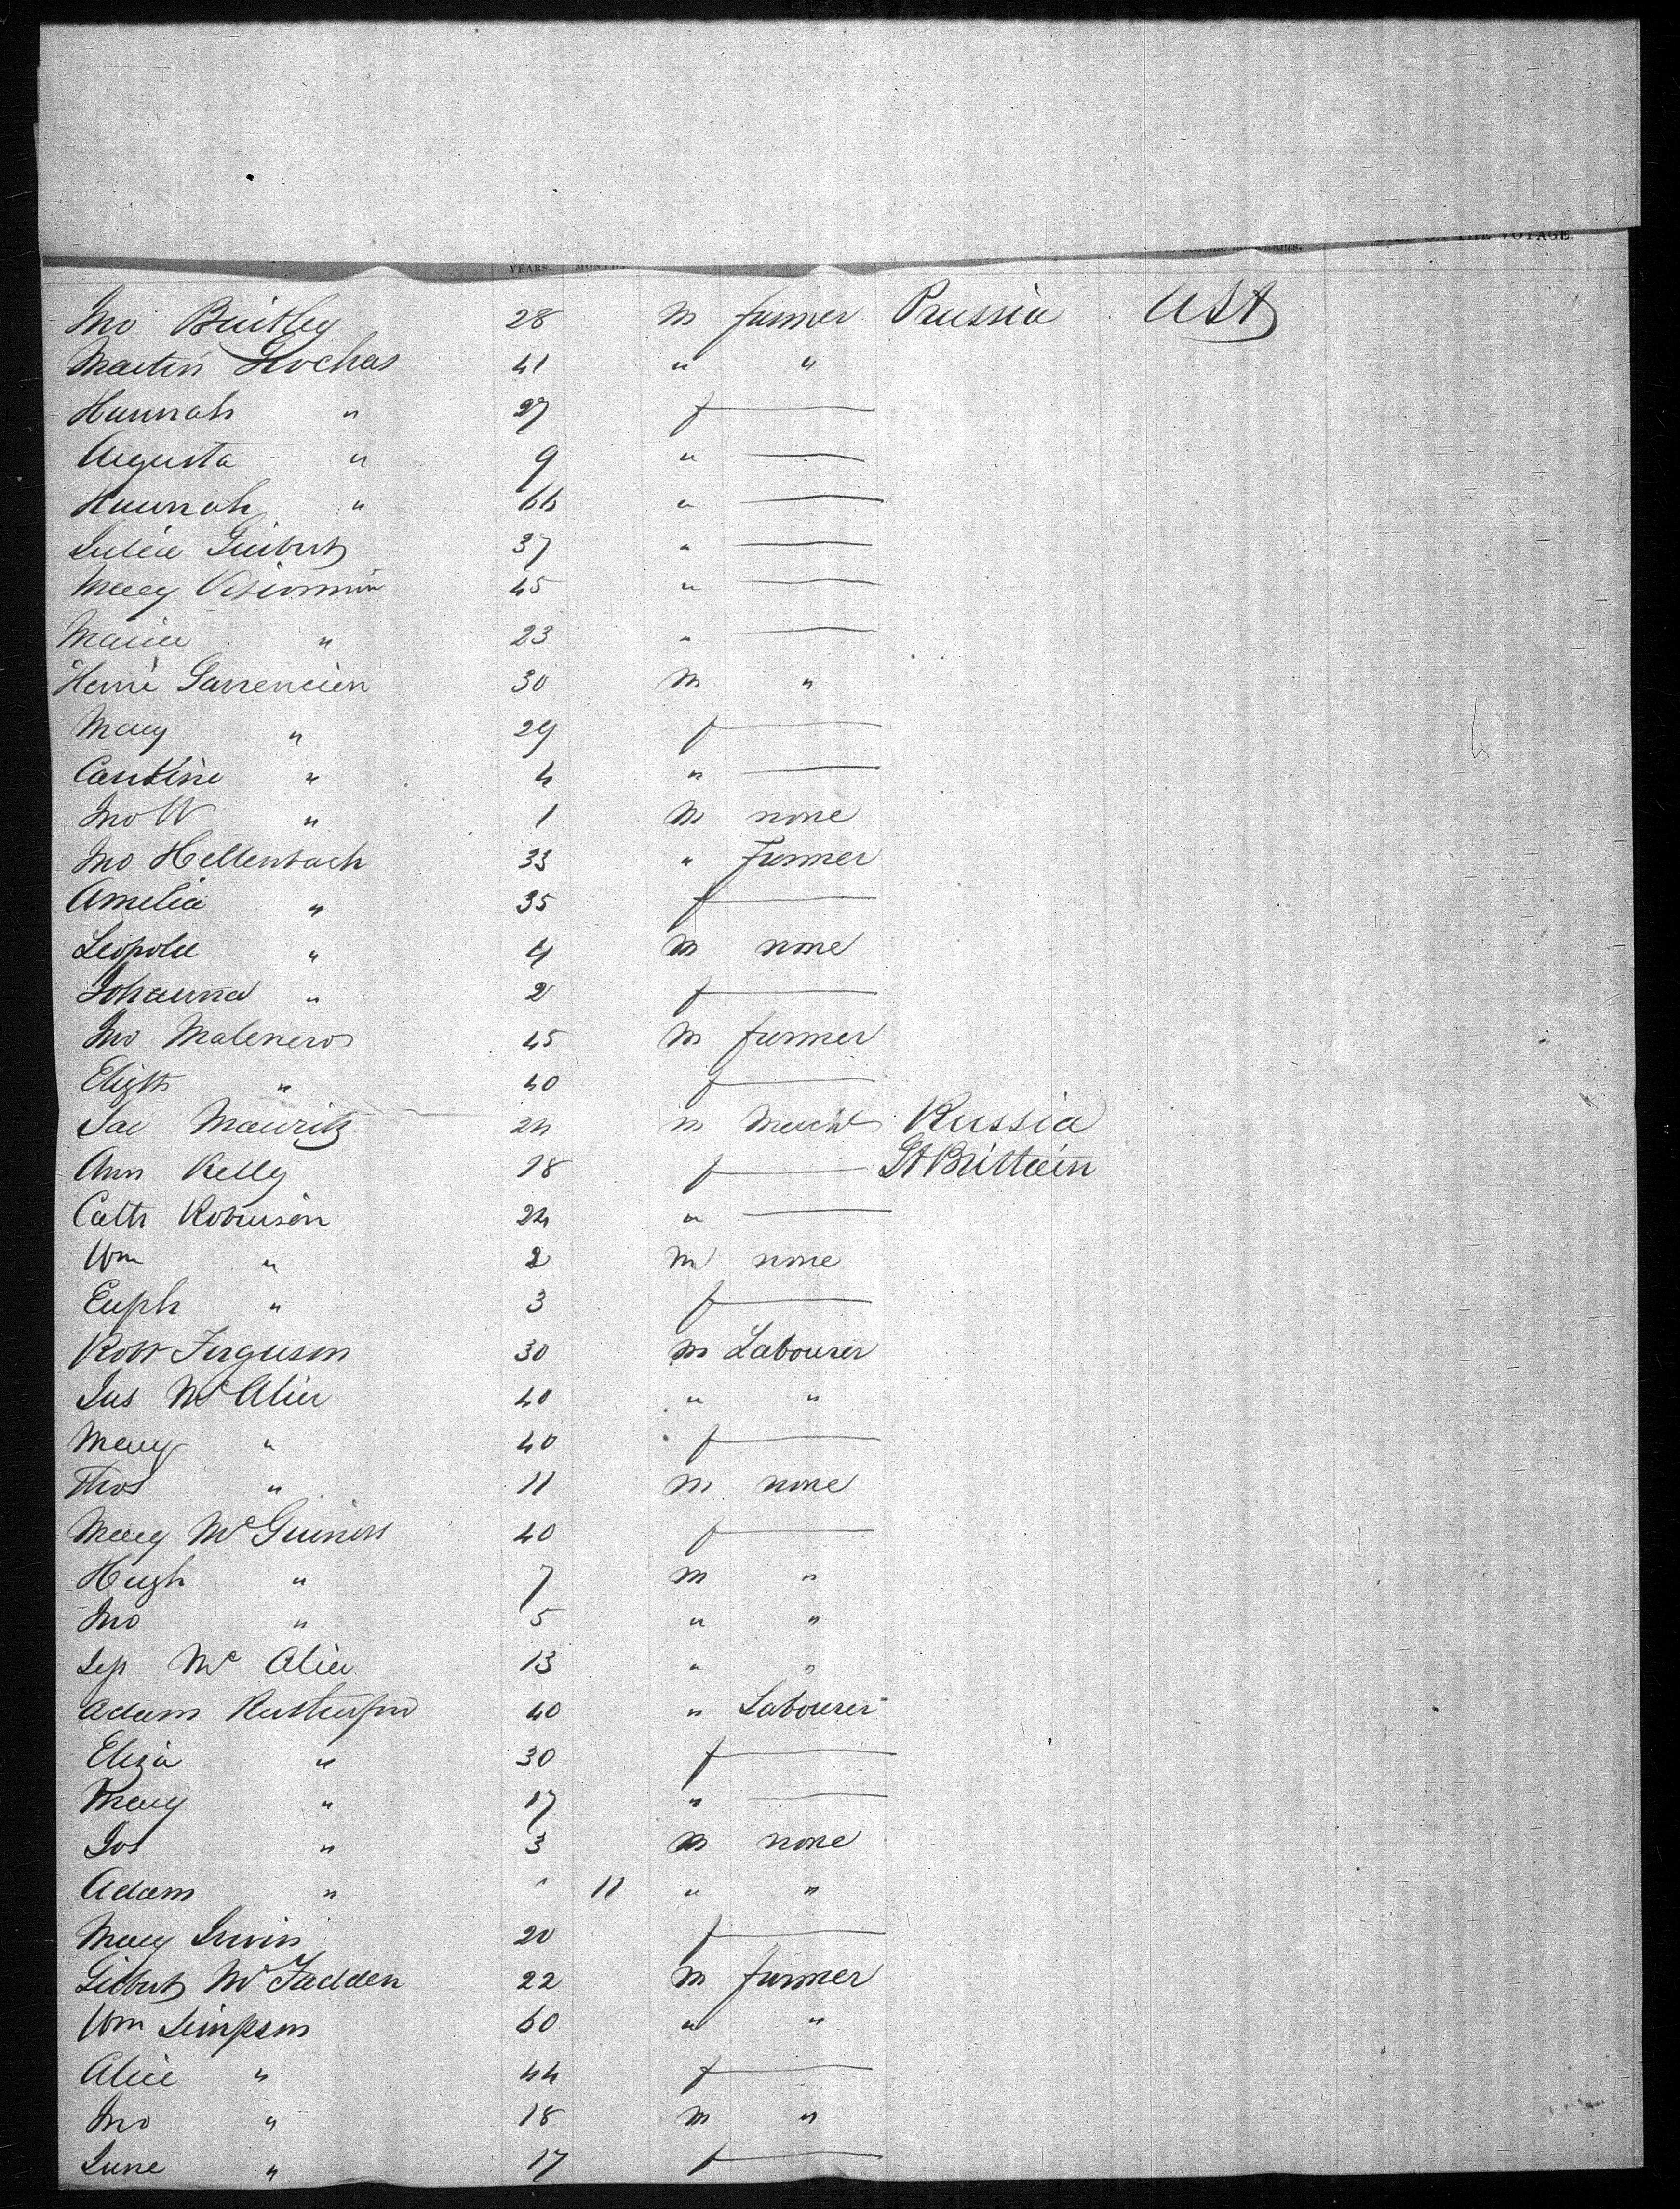 YEARS. MONTHS. VOYAGE.
Jno 28 M farmer Prussia USA
Martin 41 " "
Hannah " 27 f
Augusta " 9 "
Hannah " 66 "
Julia 37 "
Mary 45 "
" 23 "
30 M "
Mary " 29 f
" 4 "
Jno W " 1 M none
Jno Hellenbach 33 " Farmer
Amelia " 35 f
Leopold " 4 M none
Johanna " 2 f
Jno 45 M farmer
Elizth " 40 f
Jac Mauritz 24 m Mercht Russia
Ann Kelly 18 f Gt Brittain
Cath Robinson 24 "
Wm " 2 M none
Euph " 3 f
Robt Ferguson 30 M Labourer
Jas 40 " "
Mary " 40 f
Thos " 11 M none
Mary McGuiness 40 f
Hugh " 7 M "
Jno " 5 " "
13 " "
Adam Rutherford 40 " Labourer
Eliza " 30 f
Mary " 17 "
Jos " 3 M none
Adam " " 11 " "
Mary 20 f
Gilbert McFadden 22 M farmer
Wm Simpson 60 " "
Alice " 44 f
Jno " 18 M "
Jane " 17 f